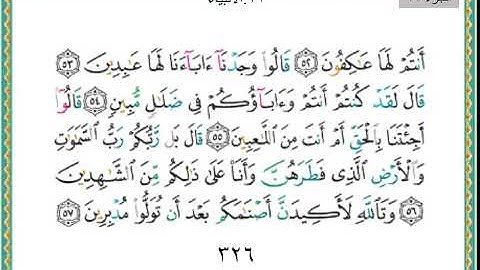 أَنتُمْ لَهَا عَـٰكِفُونَ ٥٢ قَالُوا۟ وَجَدْنَآ ءَابَآءَنَا لَهَا عَـٰبِدِينَ ٥٣
قَالَ لَقَدْ كُنتُمْ أَنتُمْ وَءَابَآؤُكُمْ فِى ضَلَـٰلٍ مُّبِينٍ ٥٤ قَالُوٓا۟
أَجِئْتَنَا بِٱلْحَقِّ أَمْ أَنتَ مِنَ ٱللَّـٰعِبِينَ ٥٥ قَالَ بَل رَّبُّكُمْ رَبُّ ٱلسَّمَـٰوَٰتِ
وَٱلْأَرْضِ ٱلَّذِى فَطَرَهُنَّ وَأَنَا۠ عَلَىٰ ذَٰلِكُم مِّنَ ٱلشَّـٰهِدِينَ
٥٦ وَتَٱللَّهِ لَأَكِيدَنَّ أَصْنَـٰمَكُم بَعْدَ أَن تُوَلُّوا۟ مُدْبِرِينَ ٥٧
٣٢٦